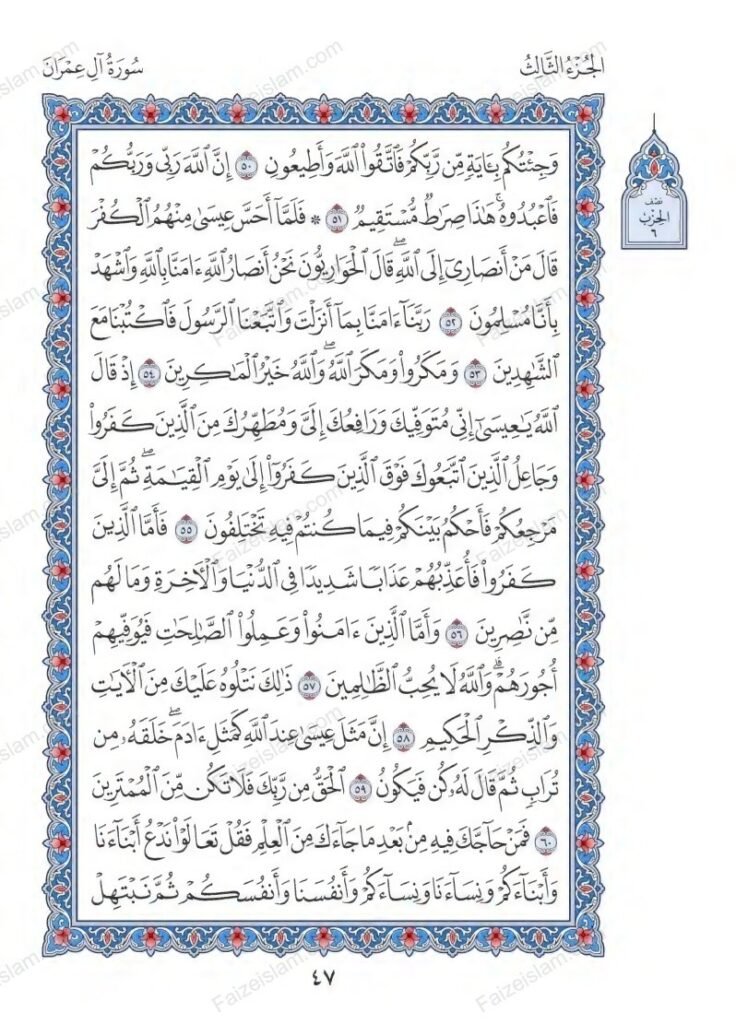 الجُزْءُ الثَّالِثُ
سُورَةُ آلِ عِمْرَانَ
وَجِئْتُكُم بِـَٔايَةٍ مِّن رَّبِّكُمْ فَاتَّقُوا۟ اللَّهَ وَأَطِيعُونِ ٥٠ إِنَّ اللَّهَ رَبِّى وَرَبُّكُمْ
فَاعْبُدُوهُ ۚ هَٰذَا صِرَاطٌ مُّسْتَقِيمٌ ٥١ * فَلَمَّا أَحَسَّ عِيسَىٰ مِنْهُمُ الْكُفْرَ
قَالَ مَنْ أَنصَارِىٓ إِلَى اللَّهِ ۖ قَالَ الْحَوَارِيُّونَ نَحْنُ أَنصَارُ اللَّهِ ءَامَنَّا بِاللَّهِ وَاشْهَدْ
بِأَنَّا مُسْلِمُونَ ٥٢ رَبَّنَآ ءَامَنَّا بِمَآ أَنزَلْتَ وَاتَّبَعْنَا الرَّسُولَ فَاكْتُبْنَا مَعَ
الشَّٰهِدِينَ ٥٣ وَمَكَرُوا۟ وَمَكَرَ اللَّهُ ۖ وَاللَّهُ خَيْرُ الْمَٰكِرِينَ ٥٤ إِذْ قَالَ
اللَّهُ يَٰعِيسَىٰٓ إِنِّى مُتَوَفِّيكَ وَرَافِعُكَ إِلَىَّ وَمُطَهِّرُكَ مِنَ الَّذِينَ كَفَرُوا۟
وَجَاعِلُ الَّذِينَ اتَّبَعُوكَ فَوْقَ الَّذِينَ كَفَرُوٓا۟ إِلَىٰ يَوْمِ الْقِيَٰمَةِ ۖ ثُمَّ إِلَىَّ
مَرْجِعُكُمْ فَأَحْكُمُ بَيْنَكُمْ فِيمَا كُنتُمْ فِيهِ تَخْتَلِفُونَ ٥٥ فَأَمَّا الَّذِينَ
كَفَرُوا۟ فَأُعَذِّبُهُمْ عَذَابًا شَدِيدًا فِى الدُّنْيَا وَالْءَاخِرَةِ وَمَا لَهُم
مِّن نَّٰصِرِينَ ٥٦ وَأَمَّا الَّذِينَ ءَامَنُوا۟ وَعَمِلُوا۟ الصَّٰلِحَٰتِ فَيُوَفِّيهِمْ
أُجُورَهُمْ ۗ وَاللَّهُ لَا يُحِبُّ الظَّٰلِمِينَ ٥٧ ذَٰلِكَ نَتْلُوهُ عَلَيْكَ مِنَ الْءَايَٰتِ
وَالذِّكْرِ الْحَكِيمِ ٥٨ إِنَّ مَثَلَ عِيسَىٰ عِندَ اللَّهِ كَمَثَلِ ءَادَمَ ۖ خَلَقَهُۥ مِن
تُرَابٍ ثُمَّ قَالَ لَهُۥ كُن فَيَكُونُ ٥٩ الْحَقُّ مِن رَّبِّكَ فَلَا تَكُن مِّنَ الْمُمْتَرِينَ
٦٠ فَمَنْ حَآجَّكَ فِيهِ مِنۢ بَعْدِ مَا جَآءَكَ مِنَ الْعِلْمِ فَقُلْ تَعَالَوْا۟ نَدْعُ أَبْنَآءَنَا
وَأَبْنَآءَكُمْ وَنِسَآءَنَا وَنِسَآءَكُمْ وَأَنفُسَنَا وَأَنفُسَكُمْ ثُمَّ نَبْتَهِلْ
نصف
الحزب
٦
٤٧
Faizeislam.com